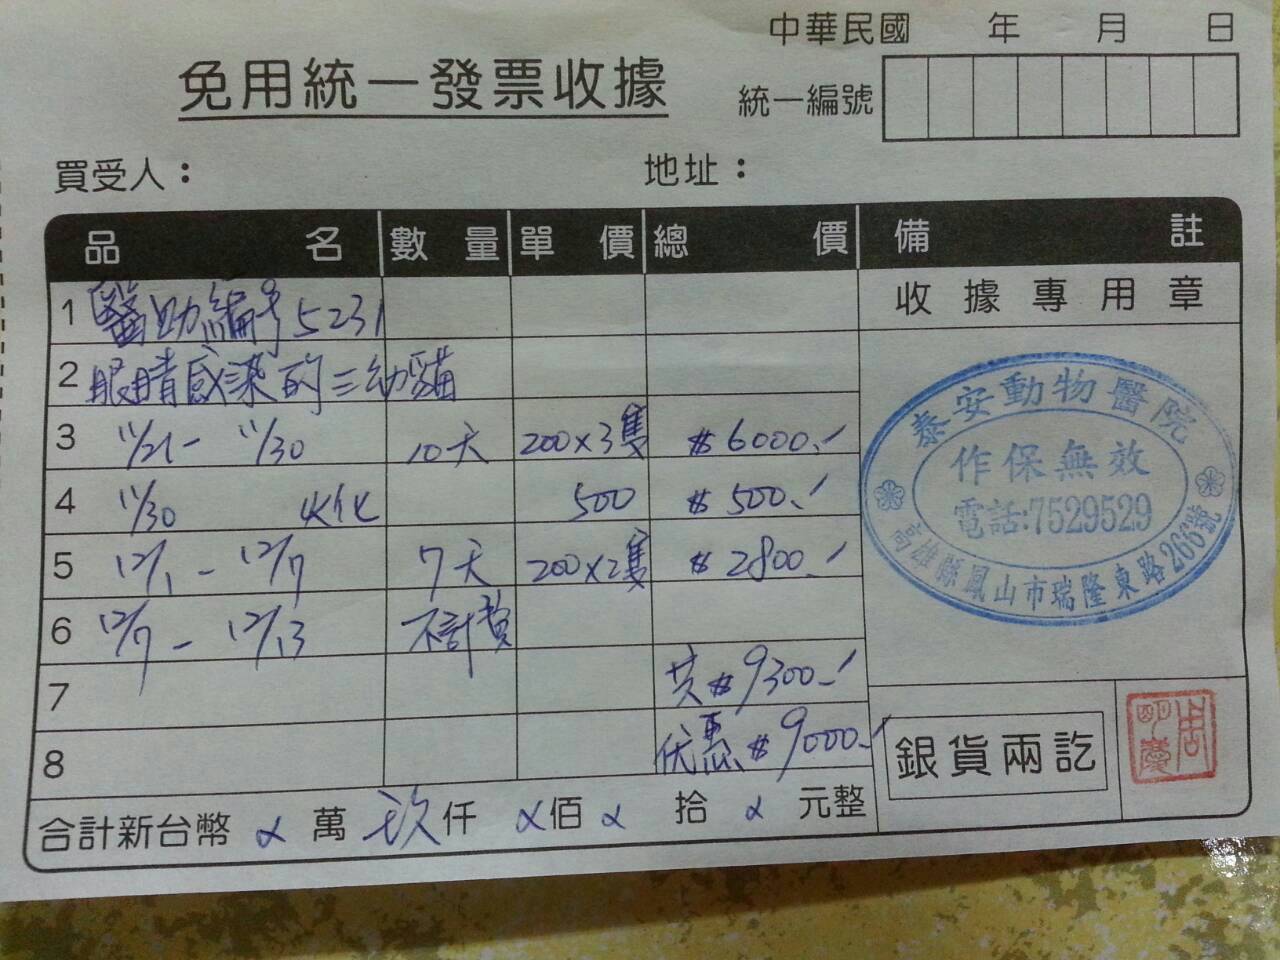 中華民國 年 月 日
免用統一發票收據
統一編號
買受人： 地址：
品名 數量 單價 總價 備註
1 醫助編號5231
收據專用章
2 眼睛感染的三幼貓
3 11/21- 11/30 10天 200×3隻 $6000.-
4 11/30 火化 500 $500.-
5 12/1 - 12/7 7天 200×2隻 $2800.-
6 12/7 - 12/13 不計費
7 共$9300.-
8 优惠$9000.-
泰安動物醫院
作保無效
電話:7529529
高雄縣鳳山市瑞隆東路266號
銀貨兩訖
合計新台幣 萬 玖仟 佰 拾 元整